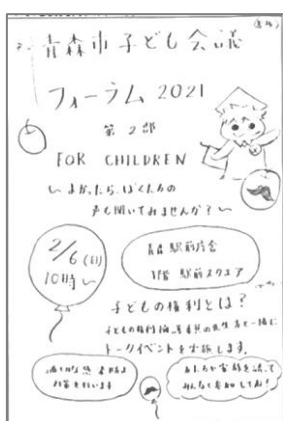 青森市子ども会議
フォーラム 2021
第2部
FOR CHILDREN
～よかったら、ぼくたちの
声も聞いてみませんか？～
2/6(日)
10時～
青森駅前庁舎
1階 駅前スクエア
子どもの権利とは？
子どもの権利相談員の先生方と一緒に
トークイベントを実施します。
対策を行います
みんなで参加してね!